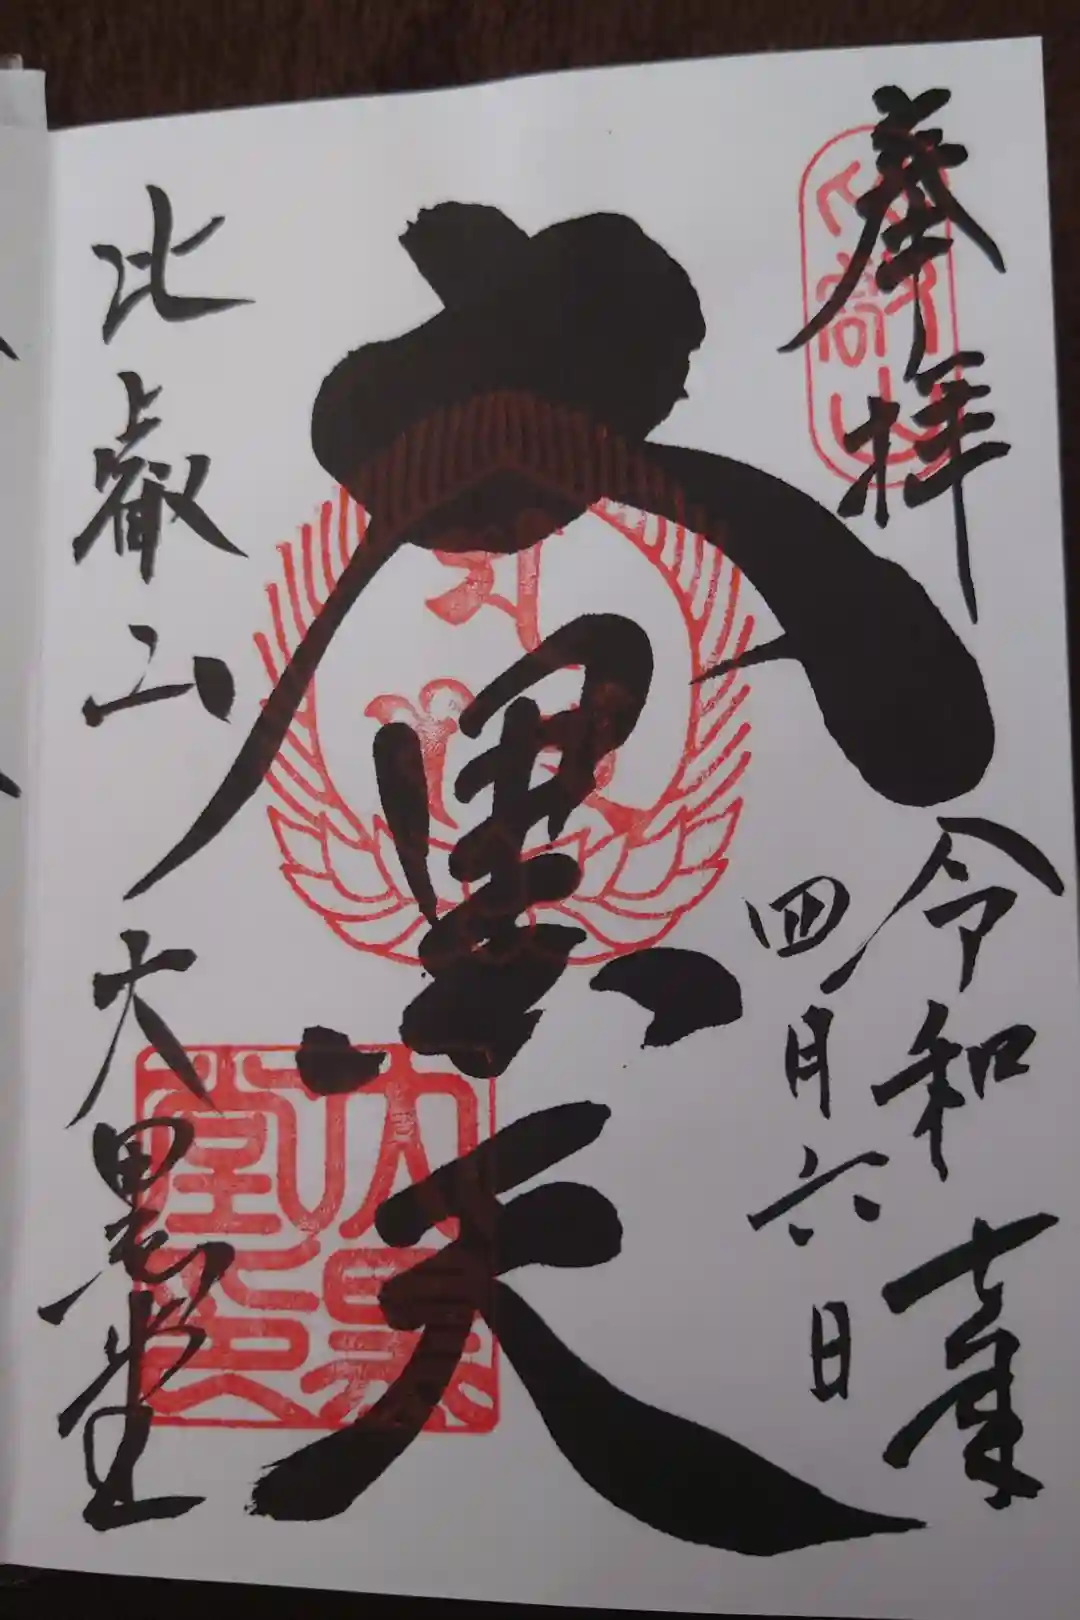 奉拝
令和七年
四月六日
大黒天
比叡山大黒堂
比叡山
大黒堂印